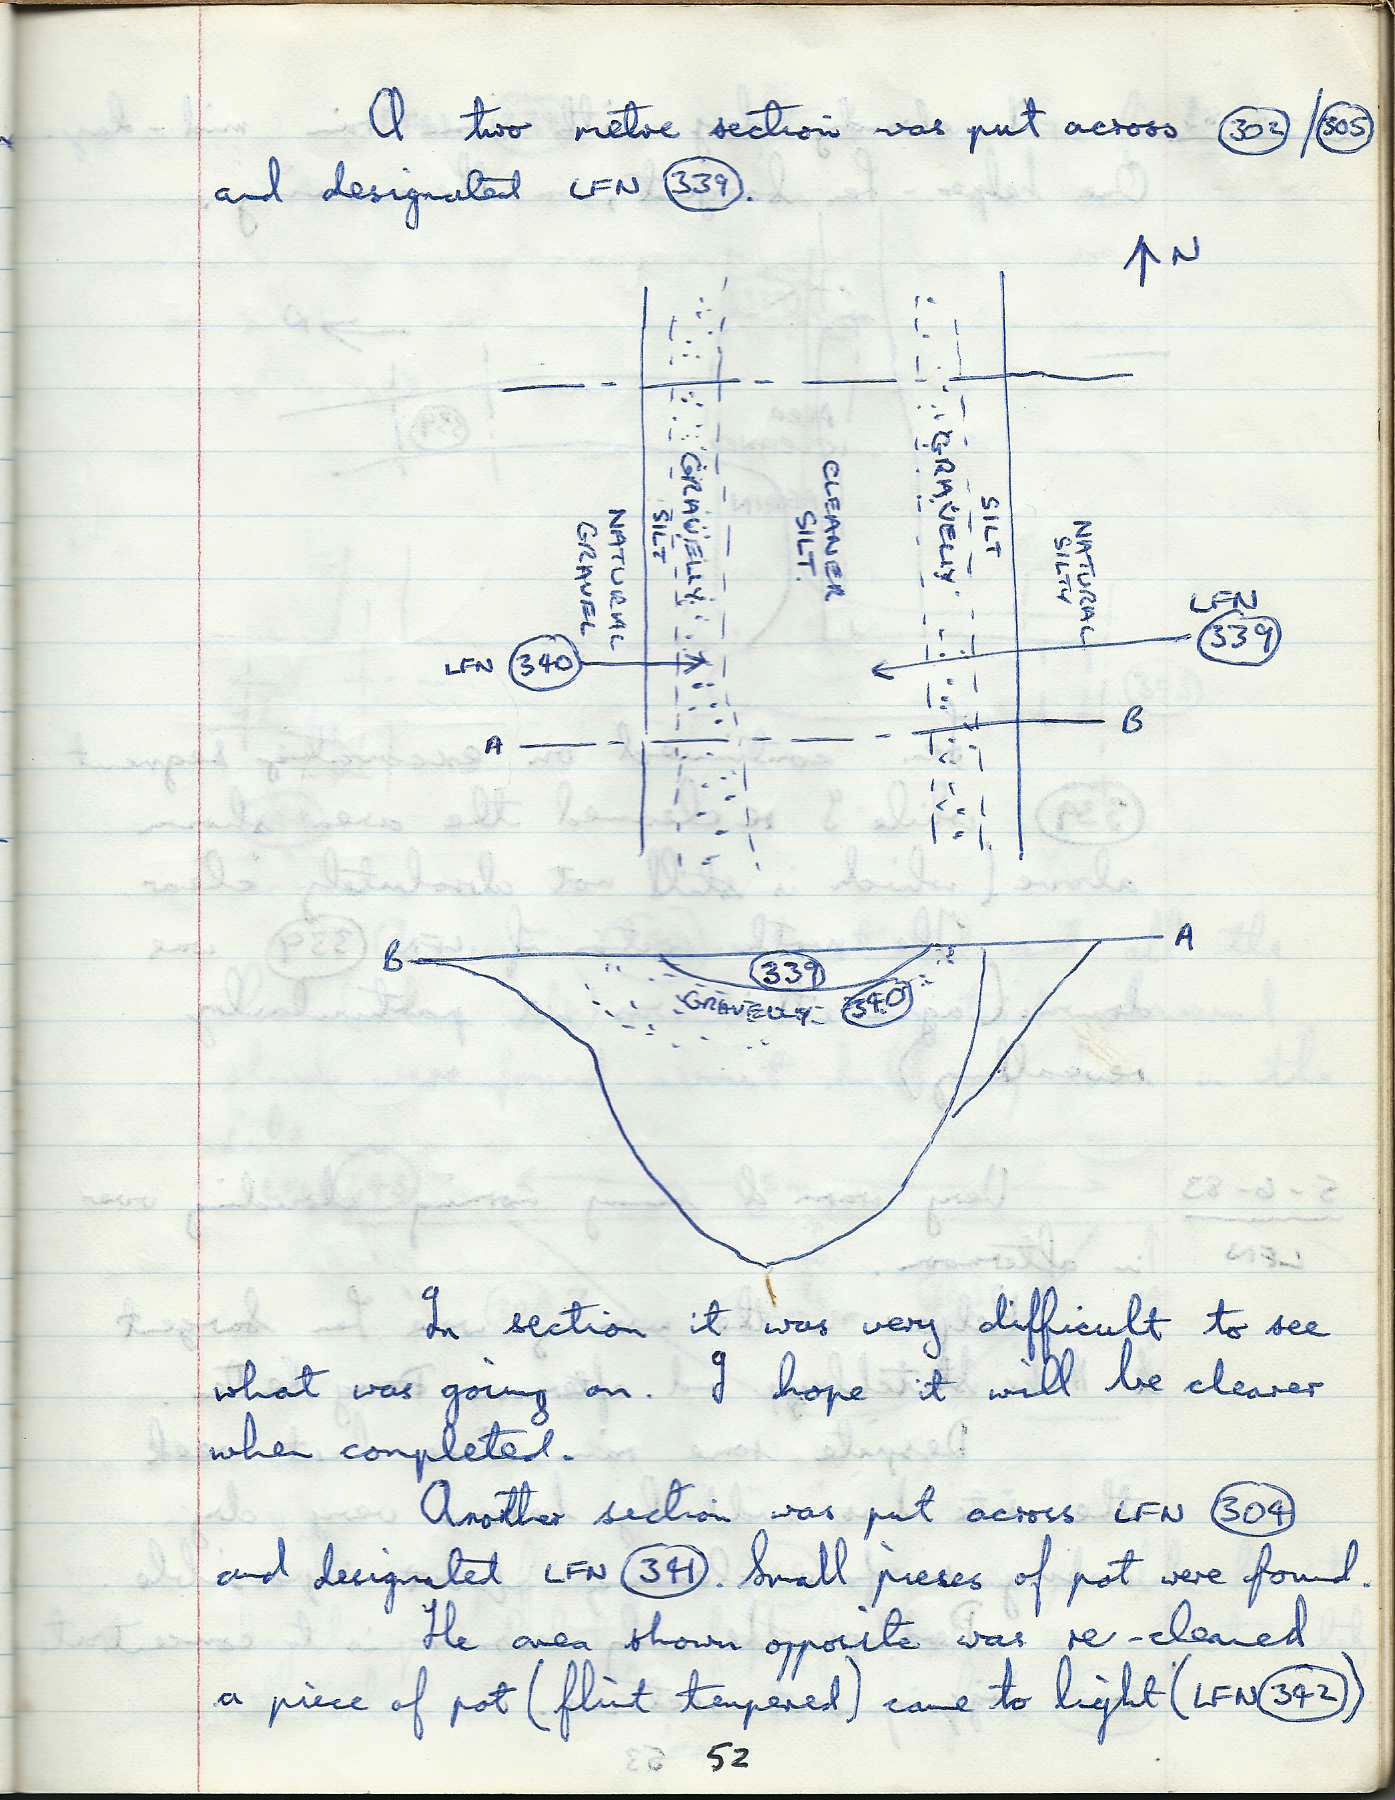 A two metre section was put across 302 / 305
and designated LFN 339.
↑ N
NATURAL
GRAVEL
GRAVELLY
SILT
CLEANER
SILT.
GRAVELLY
SILT
NATURAL
SILTY
LFN
339
LFN 340
A
B
B
A
339
GRAVELLY
340
In section it was very difficult to see
what was going on. I hope it will be clearer
when completed.
Another section was put across LFN 304
and designated LFN 341. Small pieses of pot were found.
The area shown opposite was re-cleaned
a piece of pot (flint tempered) came to light (LFN 342)
52